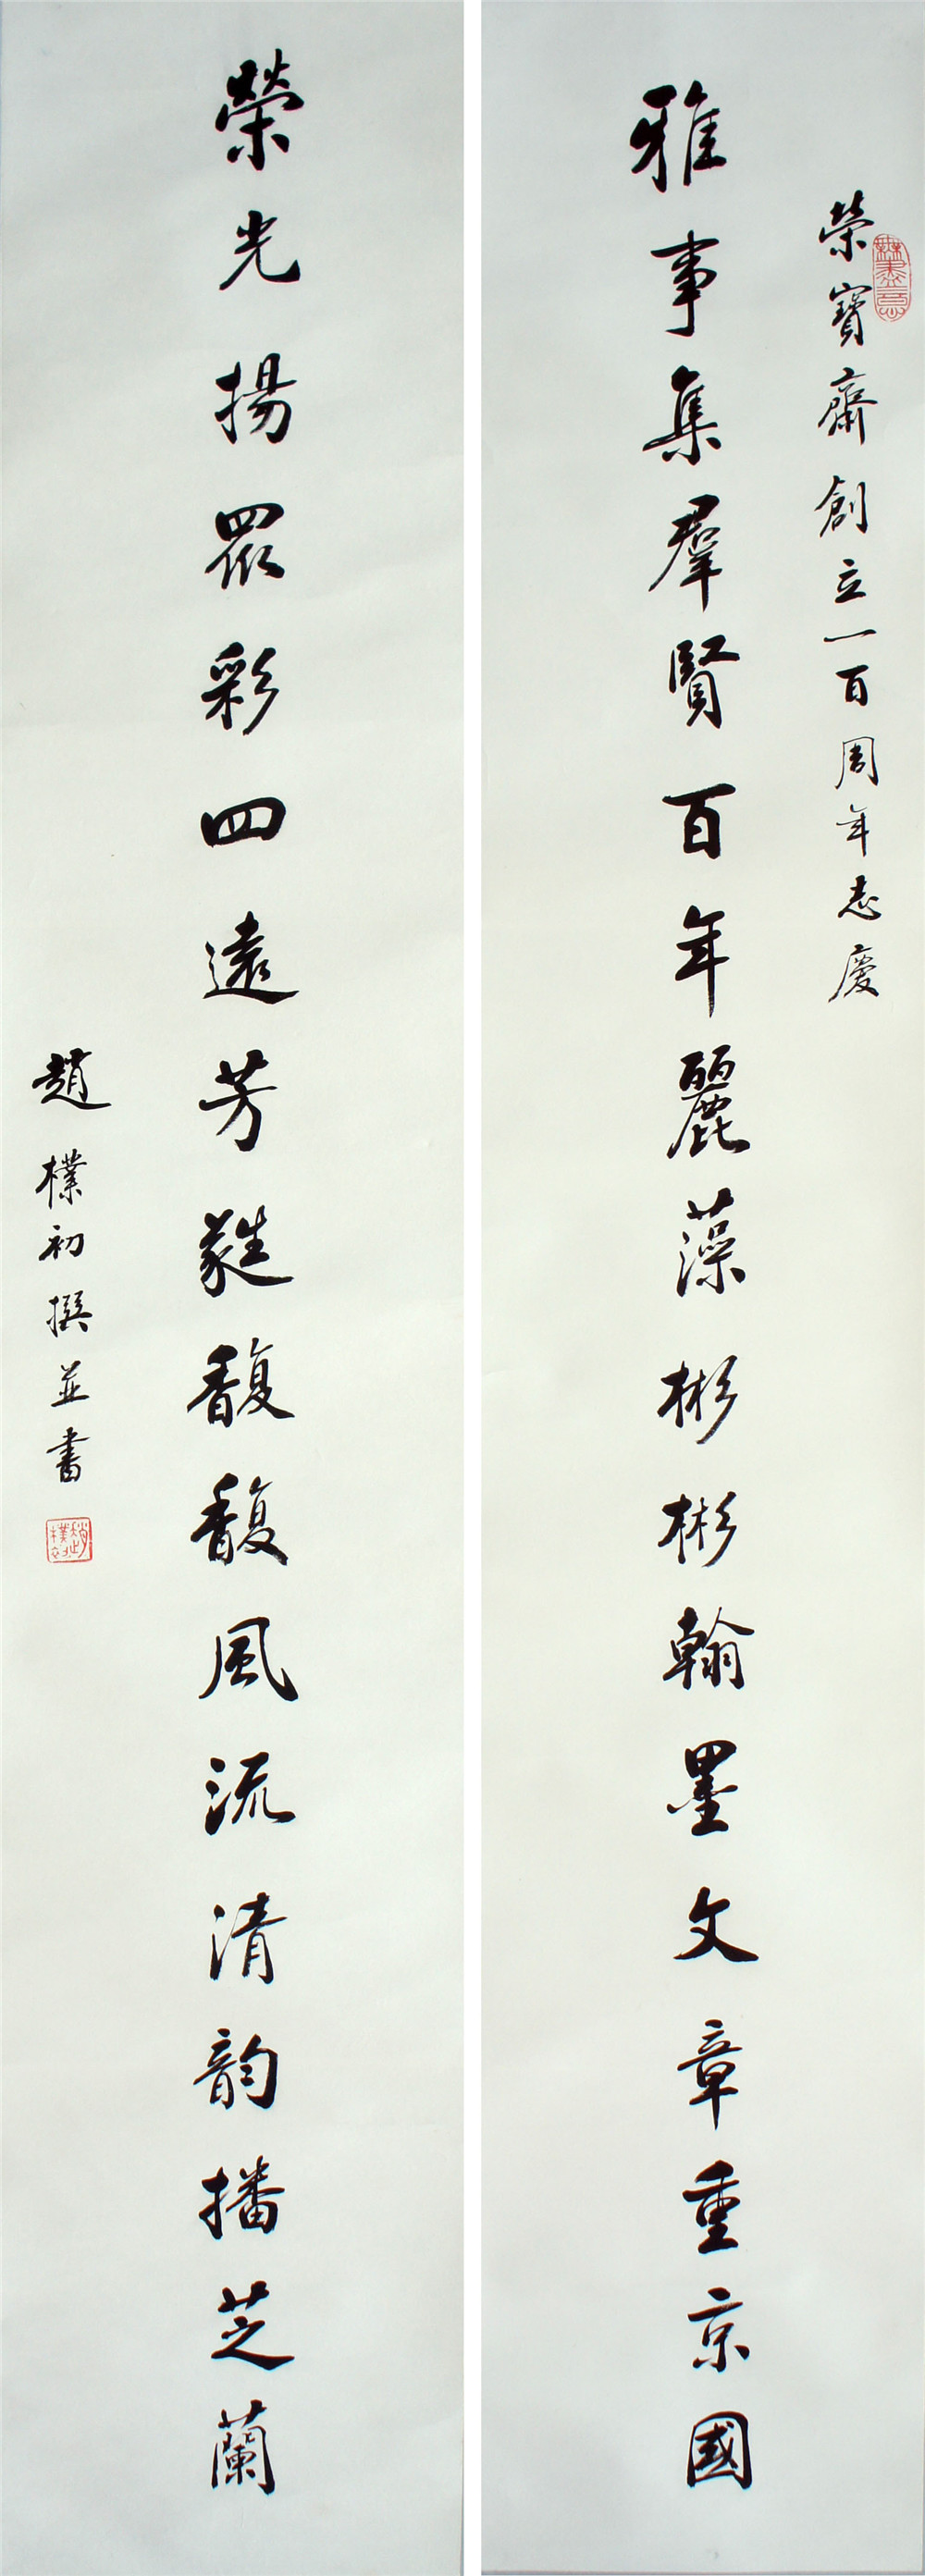 榮寶齋創立一百周年志慶
雅事集羣賢百年麗藻彬彬翰墨文章重京國
榮光揚眾彩四遠芳蕤馥馥風流清韵播芝蘭
趙樸初撰並書
無盡意
趙樸初